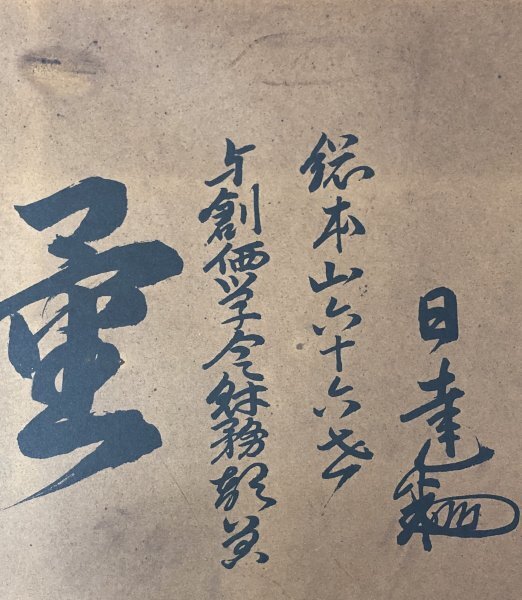 日達
総本山六十六世
与創価学会財務部員